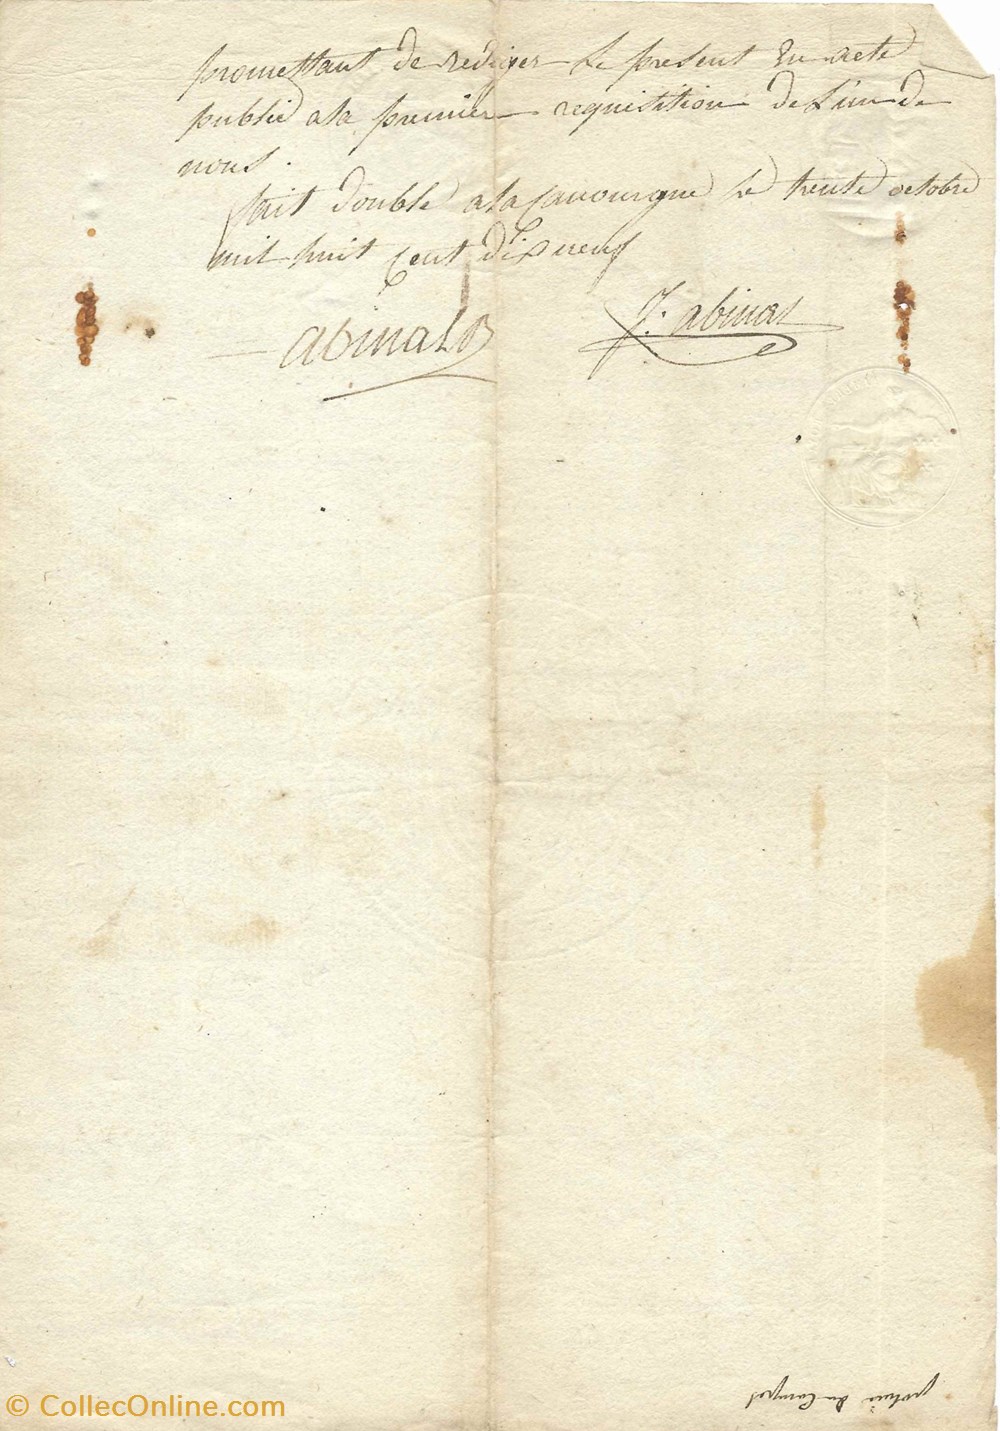 promettant de rediger le present en acte
public ala premier requisition de lun de
nous.
fait double ala Canourgue le trente octobre
mil huit Cent dixneuf
abinal
J. abinal
du
© CollecOnline.com